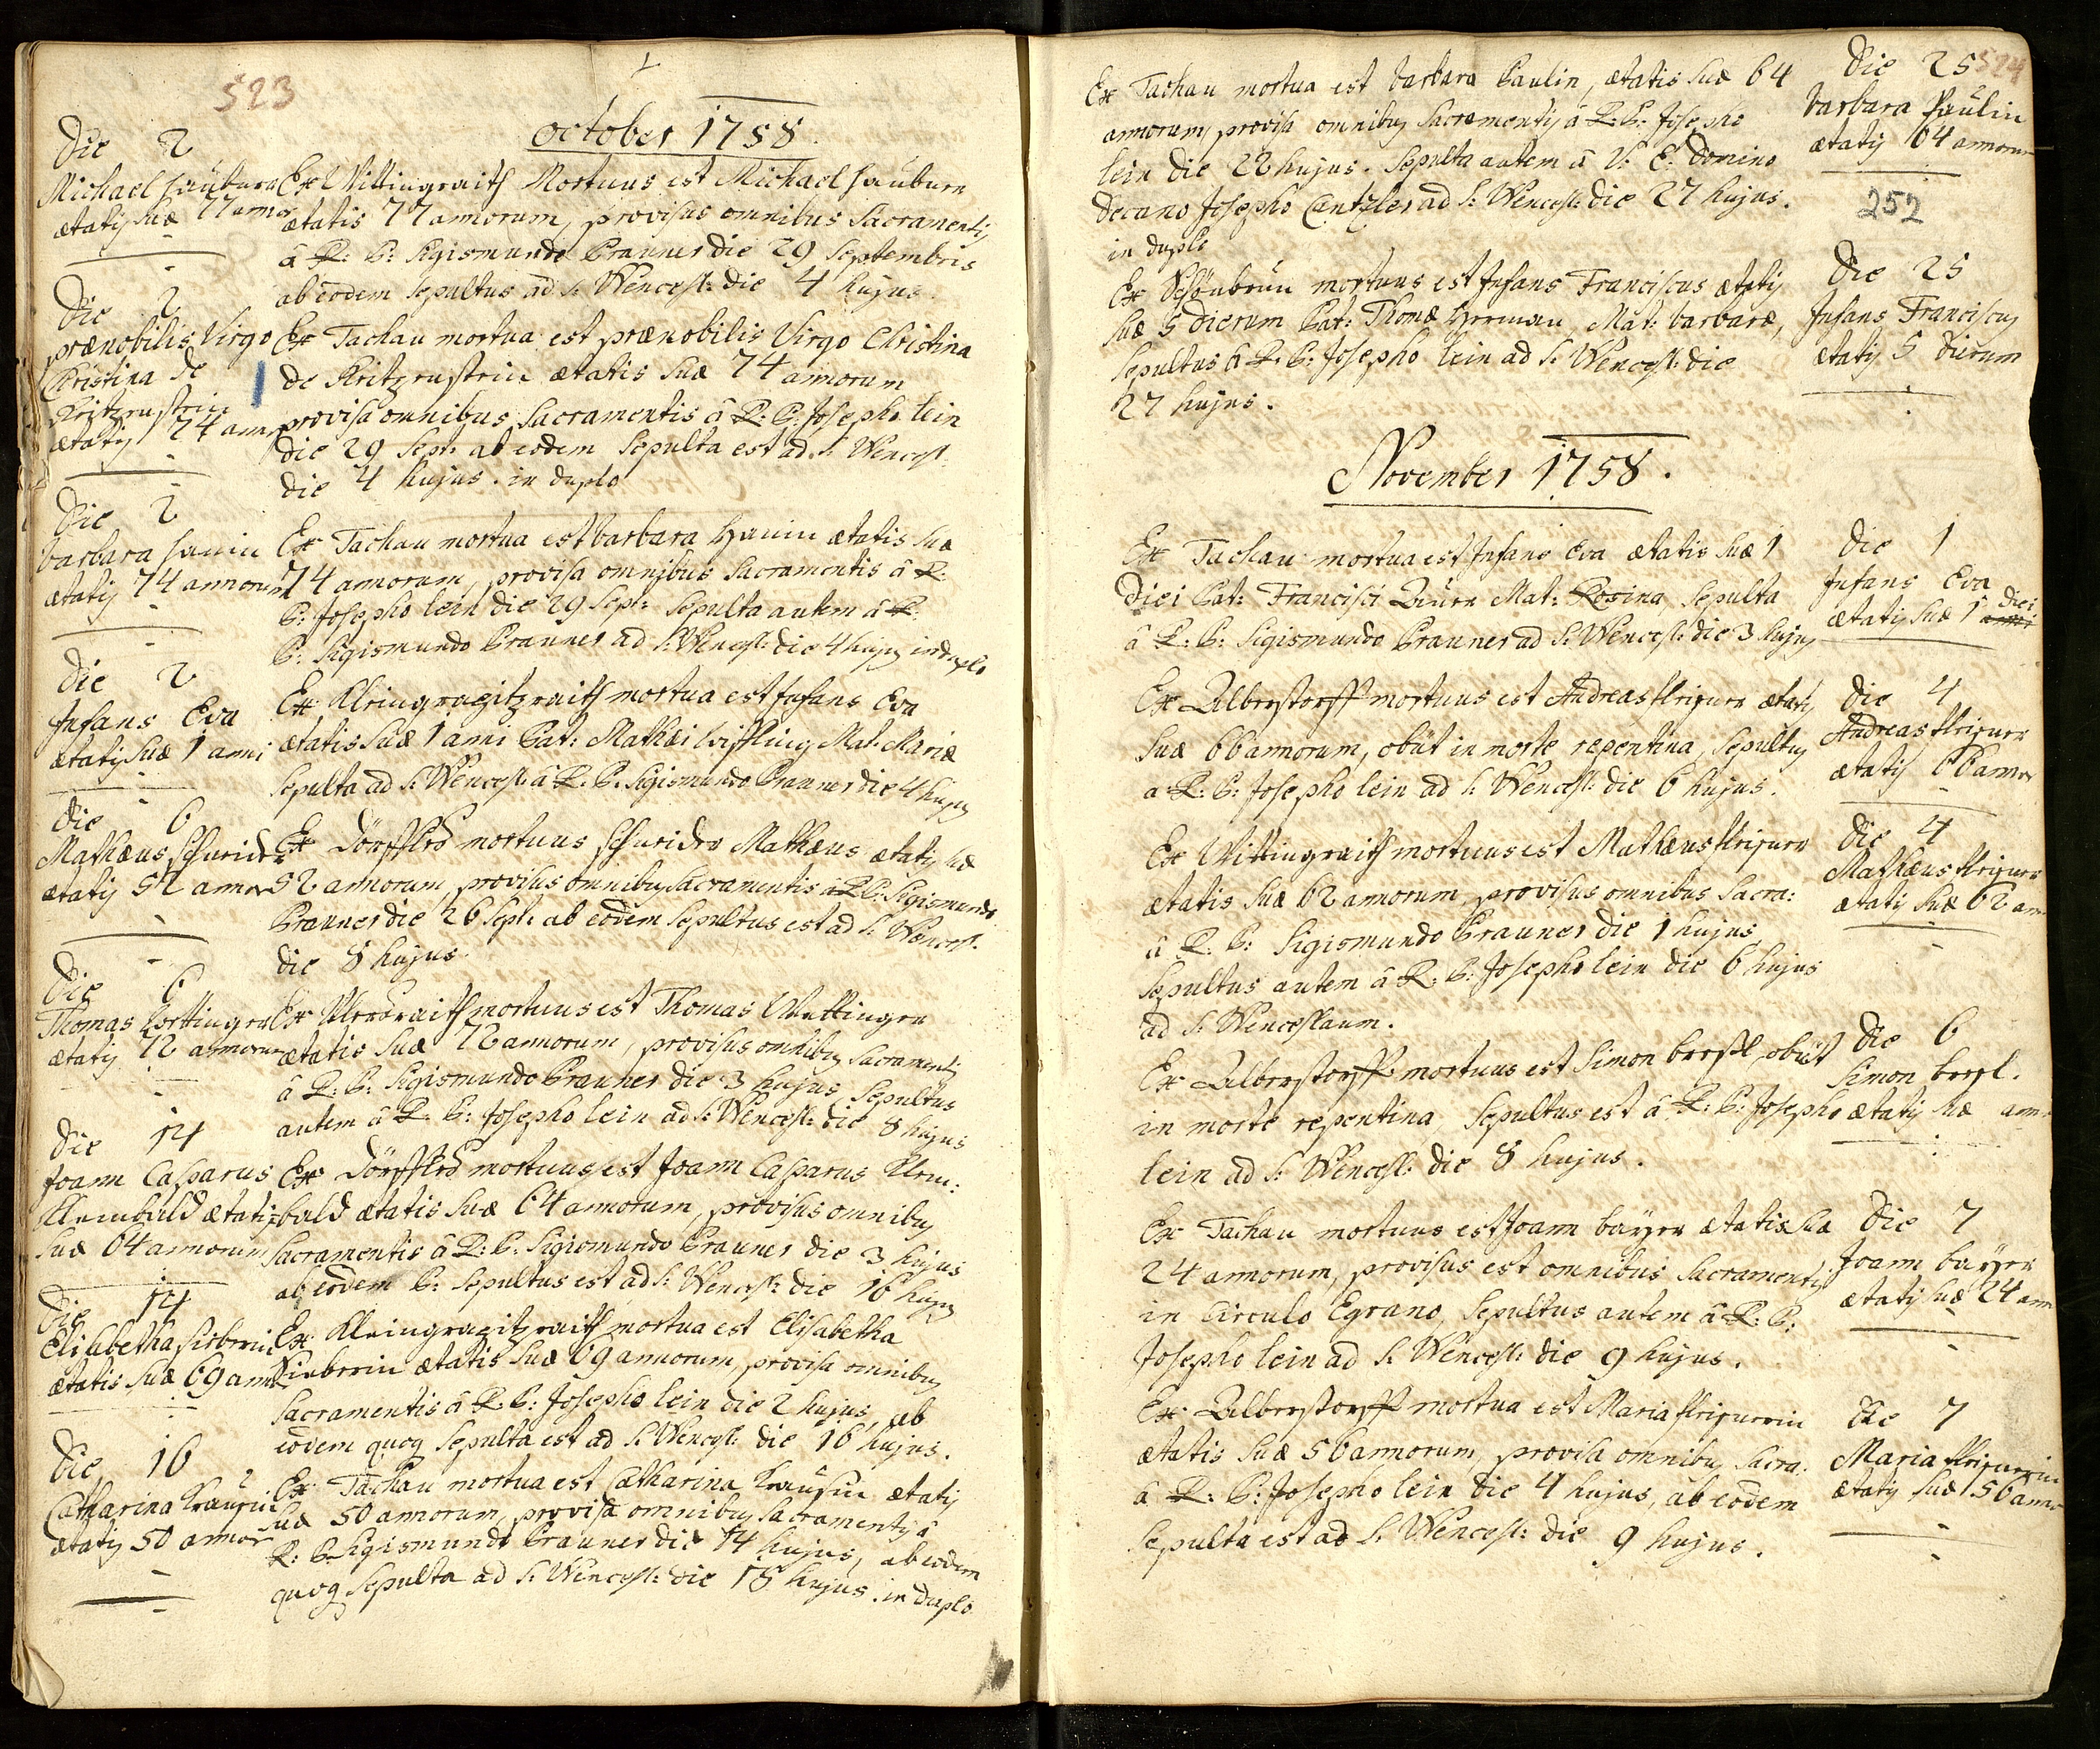 523
October 1758.
Die 2
Michael Haüburn
ætatis suæ 77 annor
Ex Wittingraith Mortuus est Michael Haüburn
ætatis 77 annorum, provisus omnibus Sacramentis
â R: P: Sigismundo Brauner die 29 Septembris
ab eodem Sepultus ad S: Wencesl: die 4 hujus.
Die 2
prænobilis Virgo
Christina de
Kritzenstein
ætatis 74 ann
Ex Tachau mortua est prænobilis Virgo Christina
de Kritzenstein ætatis suæ 74 annorum
provisa omnibus Sacramentis â R: P: Josepho Lein
die 29 Sept: ab eodem Sepulta est ad S: Wencesl:
die 4 hujus. in duplo
Die 2
Barbara Hanin
ætatis 74 annorum
Ex Tachau mortua est Barbara Hanin ætatis suæ
74 annorum, provisa omnibus Sacramentis â R:
P: Josepho Lein die 29 Sept: Sepulta autem â R:
P: Sigismundo Brauner ad S: Wencesl: die 4 hujus in duplo
Die 2
Infans Eva
ætatis suæ 1 anni
Ex Kleingropitzraith mortua est Infans Eva
ætatis suæ 1 ani Pat: Mathæi Wissling Mat: Mariæ
Sepulta ad S: Wencesl: â R: P: Sigismundo Brauner die 4 hujus
Die 6
Mathæus Schneider
ætatis 52 annor
Ex Dörfflers mortuus Schneider Mathæus ætatis suæ
52 annorum, provisus omnibus Sacramentis â R: P: Sigismundo
Brauner die 26 Sept: ab eodem Sepultus est ad S: Wencesl:
die 8 hujus.
Die 6
Thomas Wettinger
ætatis 72 annorum
mortuus est Thomas Wettinger
ætatis suæ 72 annorum, provisus omnibus Sacramentis
â R: P: Sigismundo Brauner die 3 hujus Sepultus
autem â R: P: Josepho Lein ad S: Wencesl: die 8 hujus
Die 14
Joann Casparus
Klembald ætatis
suæ 64 annorum
Ex Dörfflers mortuus est Joann Casparus Klem:
bald ætatis suæ 64 annorum, provisus omnibus
Sacramentis â R: P: Sigismundo Brauner die 3 hujus
ab eodem P: Sepultus est ad S: Wencesl: die 16 hujus
Die 14
Elisabetha Sieberin
ætatis suæ 69 ann
Ex Kleingropitzraith mortua est Elisabetha
Sieberin ætatis suæ 69 annorum, provisa omnibus
Sacramentis â R: P: Josepho Lein die 2 hujus, ab
eodem quoq Sepulta est ad S: Wencesl: die 16 hujus.
Die 16
Catharina Krausin
ætatis 50 annor
Ex Tachau mortua est Catharina Krausin ætatis
suæ 50 annorum, provisa omnibus Sacramentis â
R: P: Sigismundo Brauner die 14 hujus, ab eodem
quoq Sepulta ad S: Wencesl: die 18 hujus. in duplo
524
Ex Tachau mortua est Barbara Paulin, ætatis suæ 64
annorum, provisa omnibus Sacramentis â R: P: Josepho
Lein die 22 hujus. Sepulta autem â V: E: Domino
Decano Josepho Cantzler ad S: Wencesl: die 27 hujus.
in duplo
Die 25
Barbara Paulin
ætatis 64 annorum
252
Ex Schönbrun mortuus est Infans Franciscus ætatis
suæ 5 dierum Pat: Thomæ Herman, Mat: Barbaræ,
Sepultus â R: P: Josepho Lein ad S: Wencesl: die
27 hujus.
Die 25
Infans Franciscus
ætatis 5 dierum
November 1758.
Ex Tachau mortua est Infans Eva ætatis suæ 1
diei Pat: Francisci Mat: Rosina, Sepulta
â R: P: Sigismundo Brauner ad S: Wencesl: die 3 hujus
Die 1
Infans Eva
ætatis suæ 1 diei anni
Ex Albersdorff mortuus est Andreas Kleisner ætatis
suæ 66 annorum, obiit in morte repentina, Sepultus
a R: P: Josepho Lein ad S: Wencesl: die 6 hujus.
Die 4
Andreas Kleisner
ætatis 66 annor
Ex Wittingraith mortuus est Mathæus Kleisner
ætatis suæ 62 annorum, provisus omnibus Sacra:
â R: P: Sigismundo Brauner die 1 hujus,
Sepultus autem â R: P: Josepho Lein die 6 hujus
ad S: Wenceslaum.
Die 4
Mathæus Kleisner
ætatis suæ 62 an
Ex Albersdorff mortuus est Simon Bressl, obiit
in morte repentina, Sepultus est â R: P: Josepho
Lein ad S: Wencesl: die 8 hujus.
Die 6
Simon Bressl.
ætatis suæ ann
Ex Tachau mortuus est Joann Bayer ætatis suæ
24 annorum, provisus est omnibus Sacramentis
in Circulo Egrano, Sepultus autem â R: P:
Josepho Lein ad S: Wencesl: die 9 hujus.
Die 7
Joann Bayer
ætatis suæ 24 ann
Ex Albersdorff mortua est Maria Kleisnerin
ætatis suæ 56 annorum, provisa omnibus Sacra:
â R: P: Josepho Lein die 4 hujus, ab eodem
Sepulta est ad S: Wencesl: die 9 hujus.
Die 7
Maria Kleisnerin
ætatis suæ 56 anno